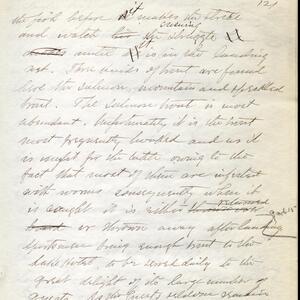 121
the fish before it makes the strike
ensuing
and watch the struggle
until it is in the landing
net. Three varieties of trout are found
here the salmon, mountain and speckled
trout. The salmon trout is most
abundant. Unfortunately it is the trout
most frequently hooked and as it
is unfit for the table owing to the
fact that most of them are infested
with worms consequently when it
is caught it is either returned
or thrown away after landing
sportsmen bring enough trout to the
Lake Hotel to be served daily to the
great delight of its large number of
guests. As the guests seldom